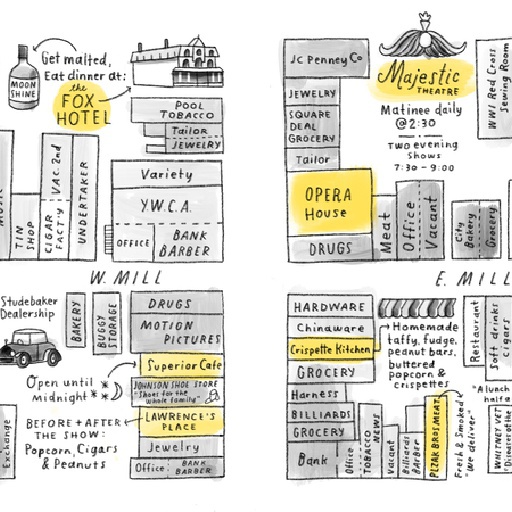 Get malted,
Eat dinner at:
the
FOX
HOTEL
MOON
SHINE
POOL
TOBACCO
Tailor
JEWELRY
TIN
SHOP
CIGAR
FACT'Y
VAC. 2nd
UNDERTAKER
Variety
Y.W.C.A.
OFFICE
BANK
BARBER
JC Penney Co
JEWELRY
SQUARE
DEAL
GROCERY
Tailor
OPERA
House
DRUGS
Majestic
THEATRE
Matinee daily
@ 2:30
TWO EVENING
SHOWS
7:30 - 9:00
WWI Red Cross
Sewing Room
Meat
Office
Vacant
City
Bakery
Grocery
W. MILL
E. MILL
Studebaker
Dealership
BAKERY
BUGGY
STORAGE
DRUGS
MOTION
PICTURES
Superior Cafe
JOHNSON SHOE STORE
"Shoes for the
whole family"
LAWRENCE'S
PLACE
Jewelry
Office:
BANK
BARBER
Open until
midnight
BEFORE + AFTER
THE SHOW:
Popcorn, Cigars
& Peanuts
Exchange
HARDWARE
Chinaware
Crispette Kitchen
GROCERY
Harness
BILLIARDS
GROCERY
Bank
Office
TOBACCO
NEWS
Vacant
Billiards
BARBER
PLZAK BROS. MEAT
Fresh & Smoked
"We deliver"
Homemade
taffy, fudge,
peanut bars,
buttered
popcorn &
crispettes
Restaurant
Soft drinks
cigars
"A lunch
half a
WHITNEY VET